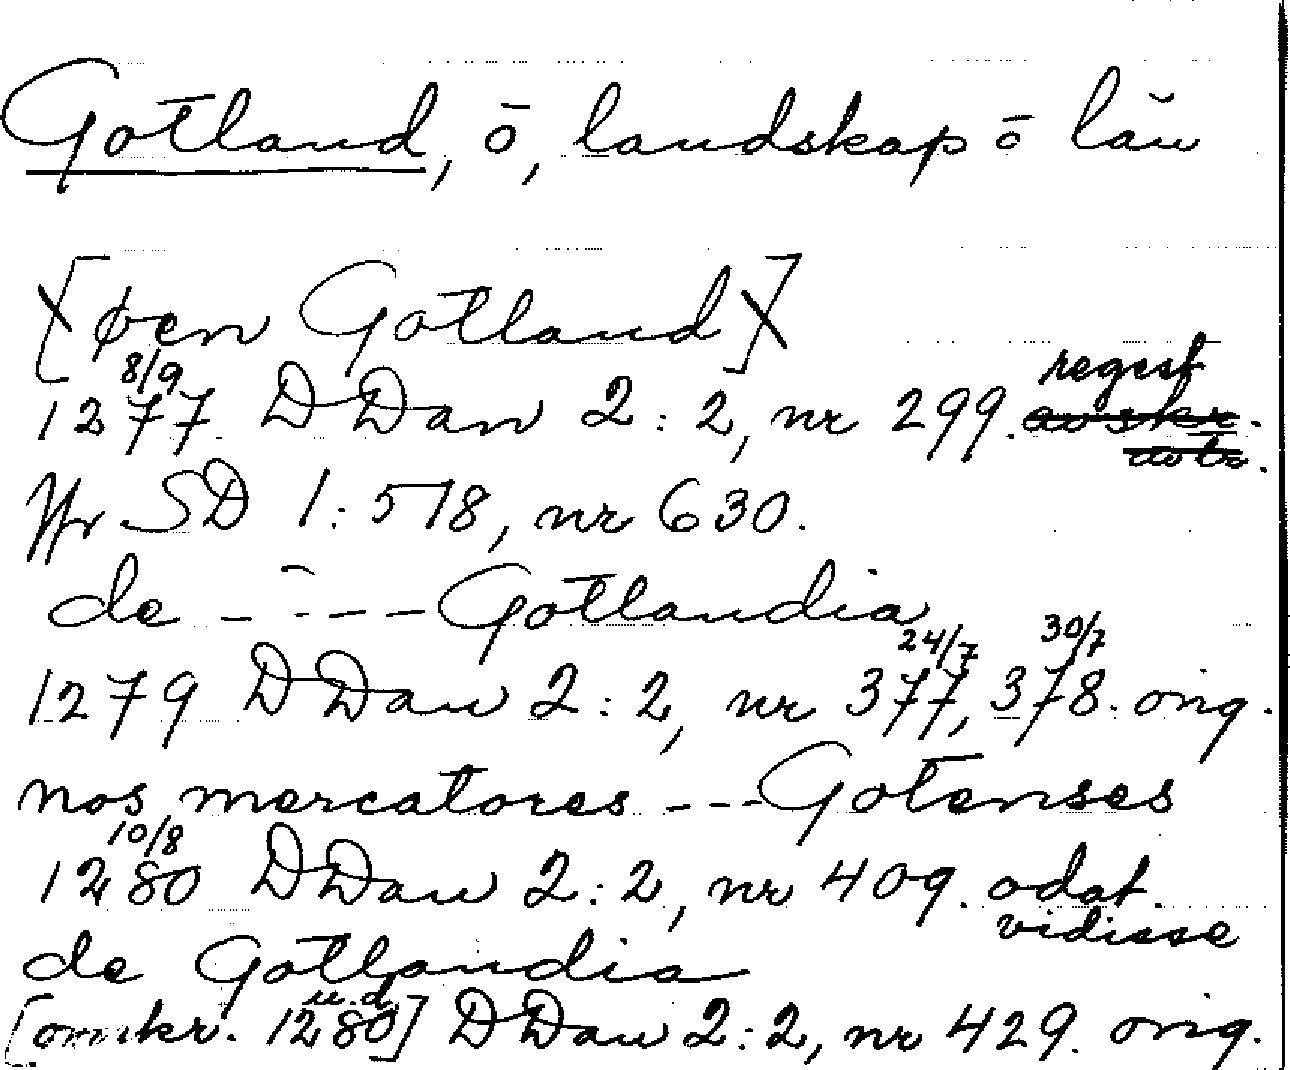 Gotland, ö, landskap o län
[øen Gotland]
8/9 regest
1277 DDan 2:2, nr 299. avskr.
avtr.
Jfr SD 1:578, nr 630.
de - - - - Gotlandia
24/7 30/7
1279 DDan 2:2, nr 377, 378. orig.
nos mercatores - - - Gotenses
10/8
1280 DDan 2:2, nr 409. odat.
vidisse
de Gotlandia
u.d.
[omkr. 1280] DDan 2:2, nr 429. orig.